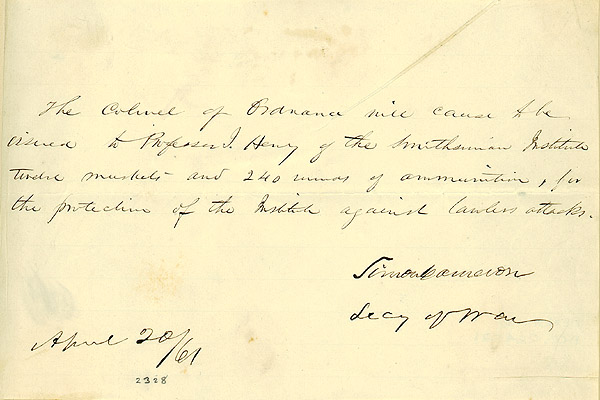 The Colonel of Ordnance will cause to be
issued to Professor J. Henry of the Smithsonian Institute
twelve muskets and 240 rounds of ammunition, for
the protection of the Institute against lawless attacks.
Simon Cameron
Secy of War
April 20/61
2328